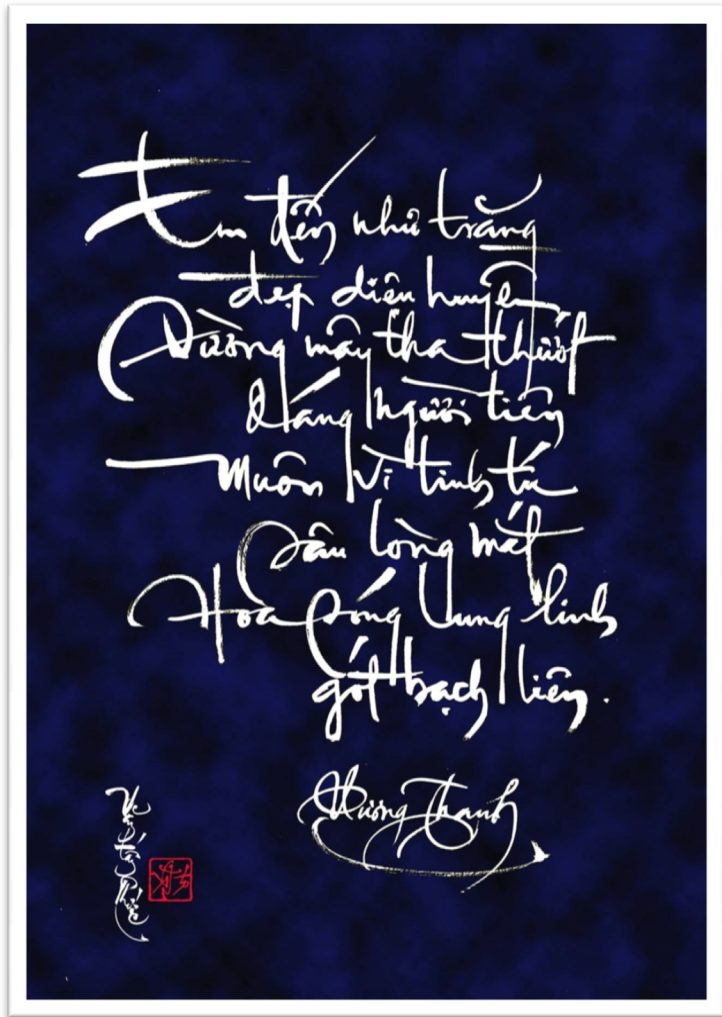 Em đến như trăng
đẹp diễm huyền
Vườn mây tha thướt
dáng người tiên
Muôn vì tinh tú
sâu lòng mắt
Hoa sóng lung linh
gót bạch liên.
Hương Thanh